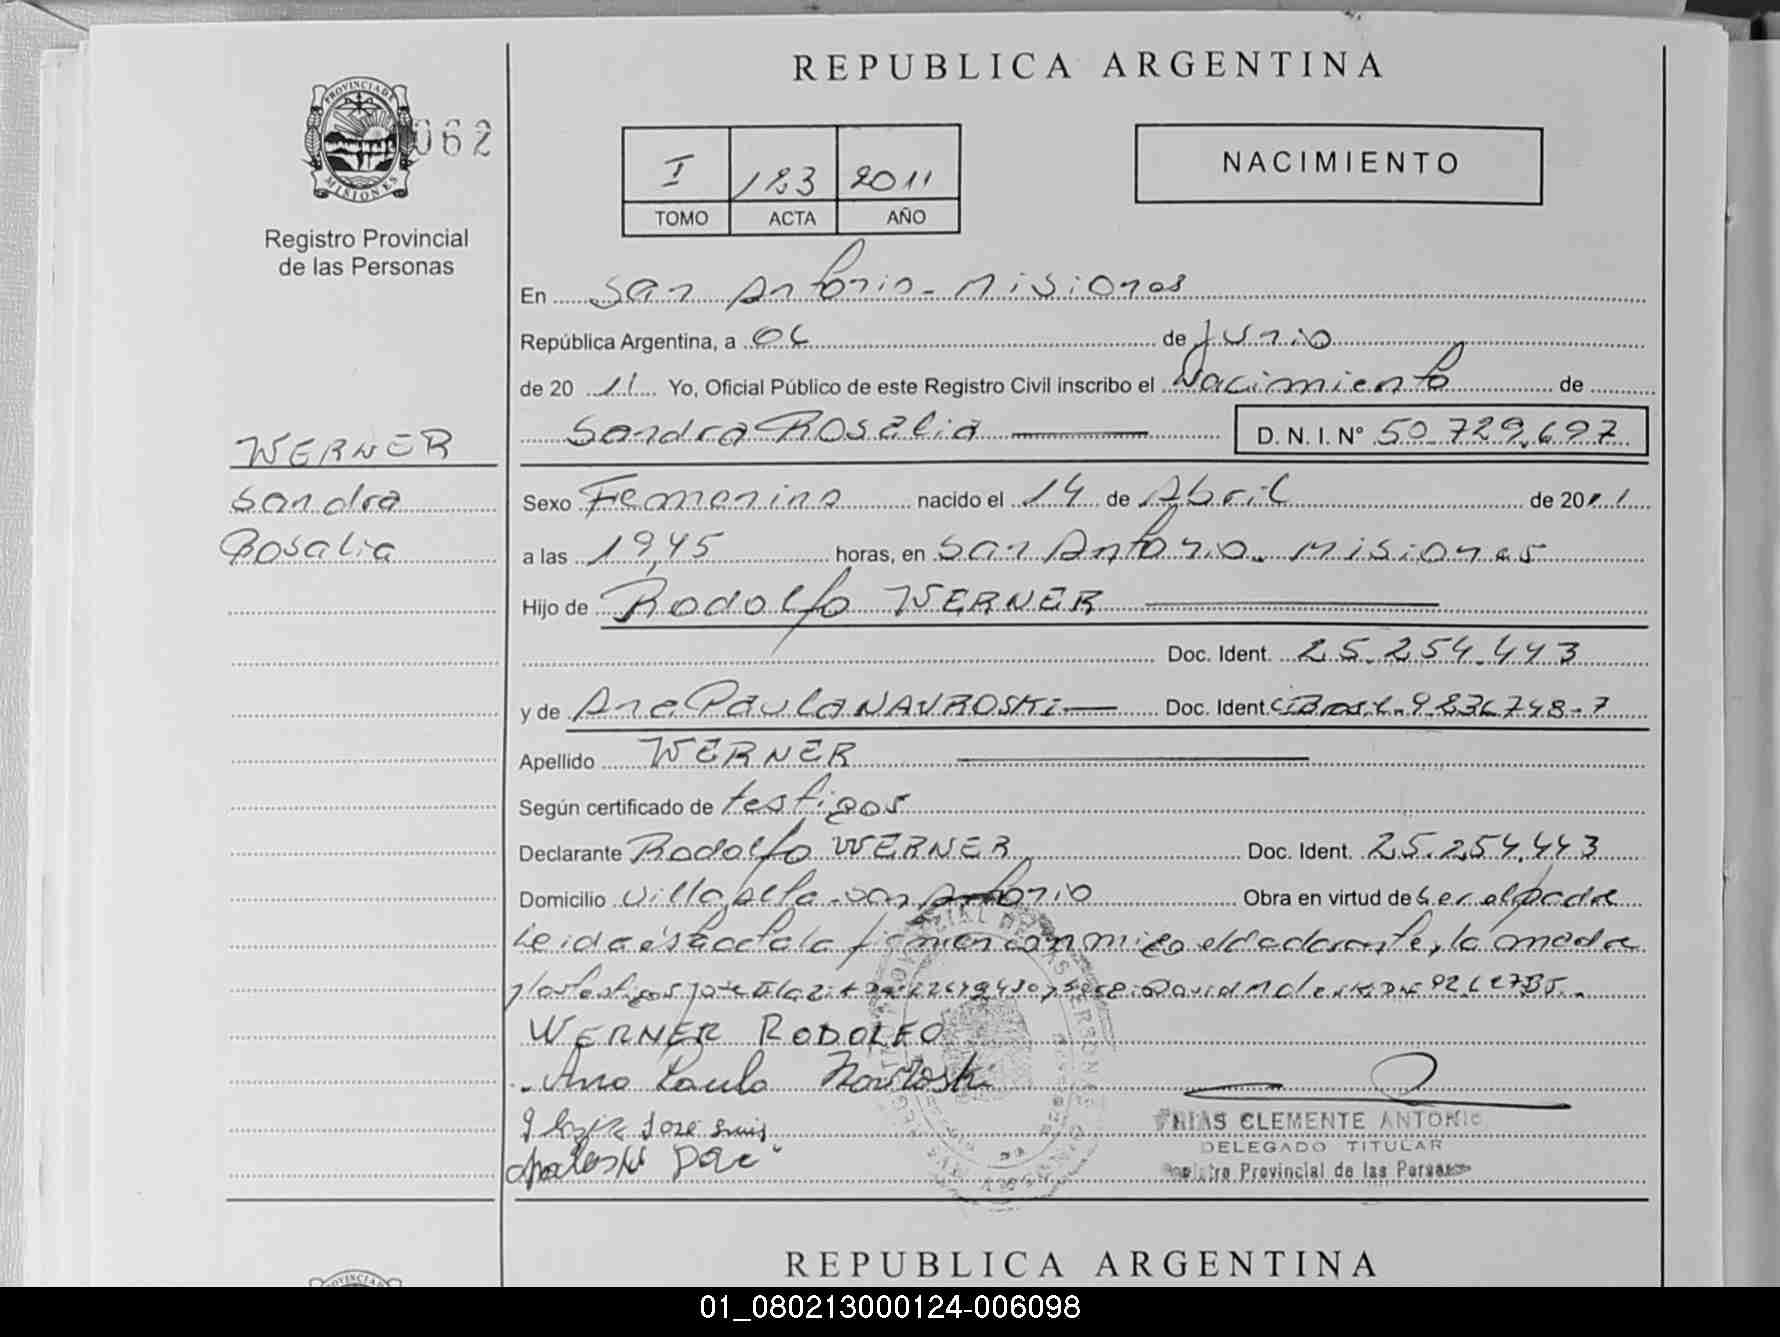 REPUBLICA ARGENTINA
PROVINCIA DE
MISIONES
062
I 183 2011
TOMO ACTA AÑO
NACIMIENTO
Registro Provincial
de las Personas
En San Antonio - Misiones
República Argentina, a 06 de Junio
de 20 11 Yo, Oficial Público de este Registro Civil inscribo el Nacimiento de
Sandra Rosalia D. N. I. Nº 50.729.697
WERNER
Sandra
Rosalia
Sexo Femenino nacido el 14 de Abril de 2011
a las 19,45 horas, en San Antonio - Misiones
Hijo de Rodolfo WERNER
Doc. Ident. 25.254.443
y de Ana Paula NAVROSKI Doc. Ident. CIBrasl. 9.836748-7
Apellido WERNER
Según certificado de testigos
Declarante Rodolfo WERNER Doc. Ident. 25.254.443
Domicilio Villa bella - San Antonio Obra en virtud de ser el padre
Leida ésta acta la firman conmigo el declarante, la madre
y los testigos David
WERNER RODOLFO
Ana Paula Navroski
Jose Luis
FRIAS CLEMENTE ANTONIO
DELEGADO TITULAR
Registro Provincial de las Personas
REPUBLICA ARGENTINA
PROVINCIA
01_080213000124-006098